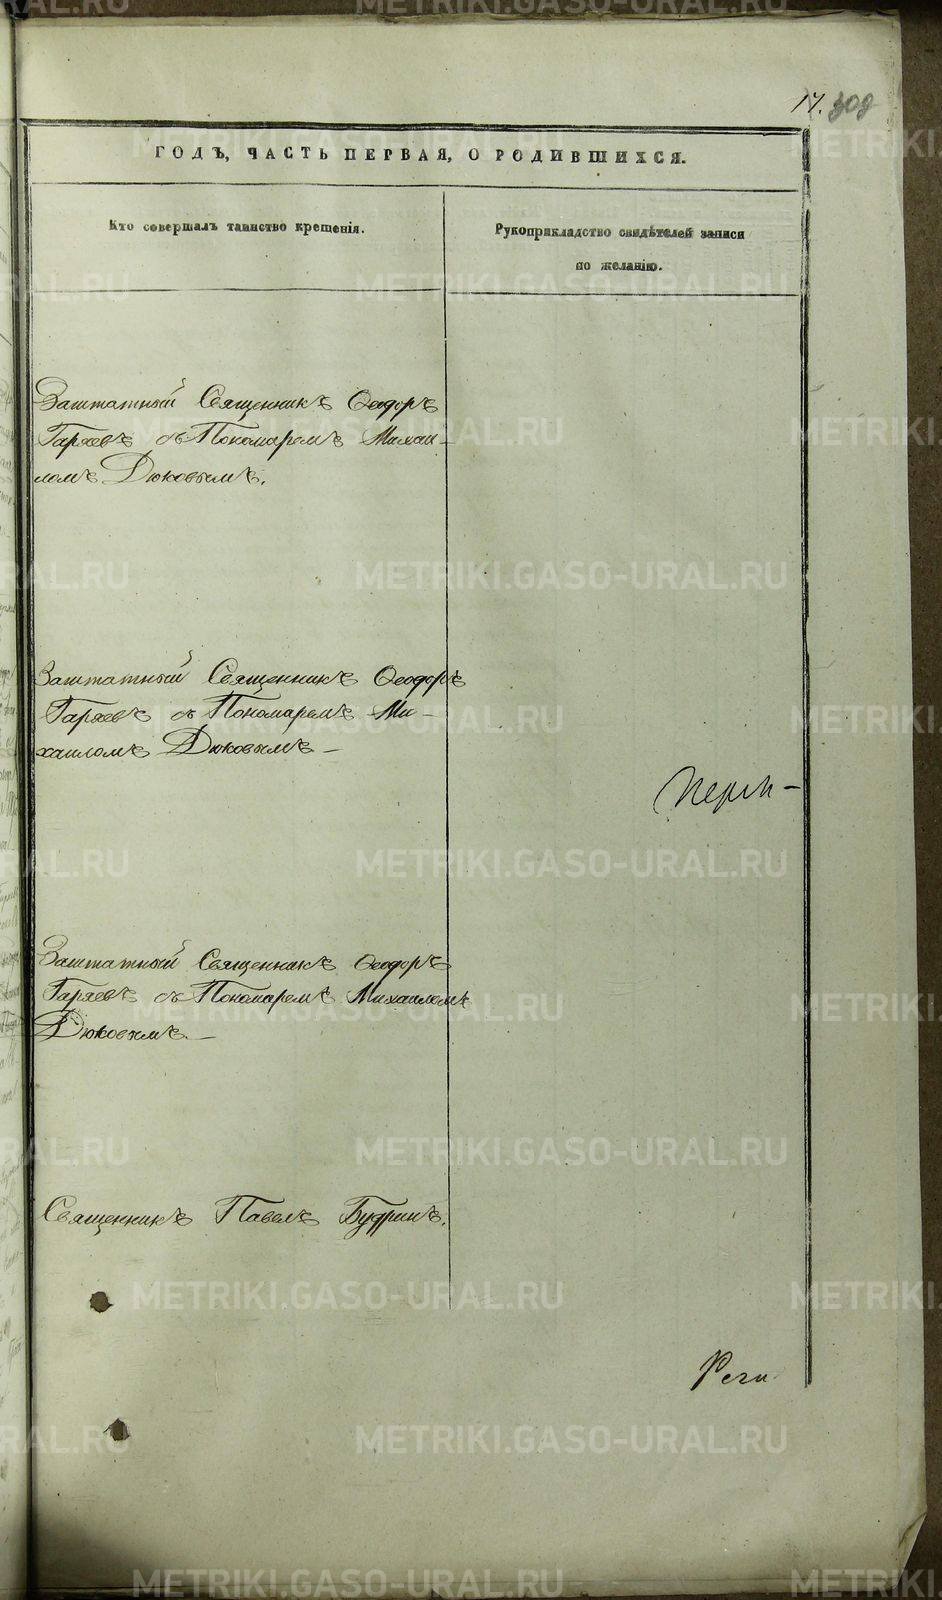 17. 308
ГОДЪ, ЧАСТЬ ПЕРВАЯ, О РОДИВШИХСЯ.
Кто совершалъ таинство крещенія.
Рукоприкладство свидѣтелей записи
по желанію.
Заштатный Священникъ Ѳеодоръ
Гаряевъ съ Пономаремъ Михаи-
ломъ Дюковымъ.
Заштатный Священникъ Ѳеодоръ
Гаряевъ съ Пономаремъ Ми-
хаиломъ Дюковымъ –
Заштатный Священникъ Ѳеодоръ
Гаряевъ съ Пономаремъ Михаиломъ
Дюковымъ. –
Священникъ Павелъ Будринъ.
METRIKI.GASO-URAL.RU